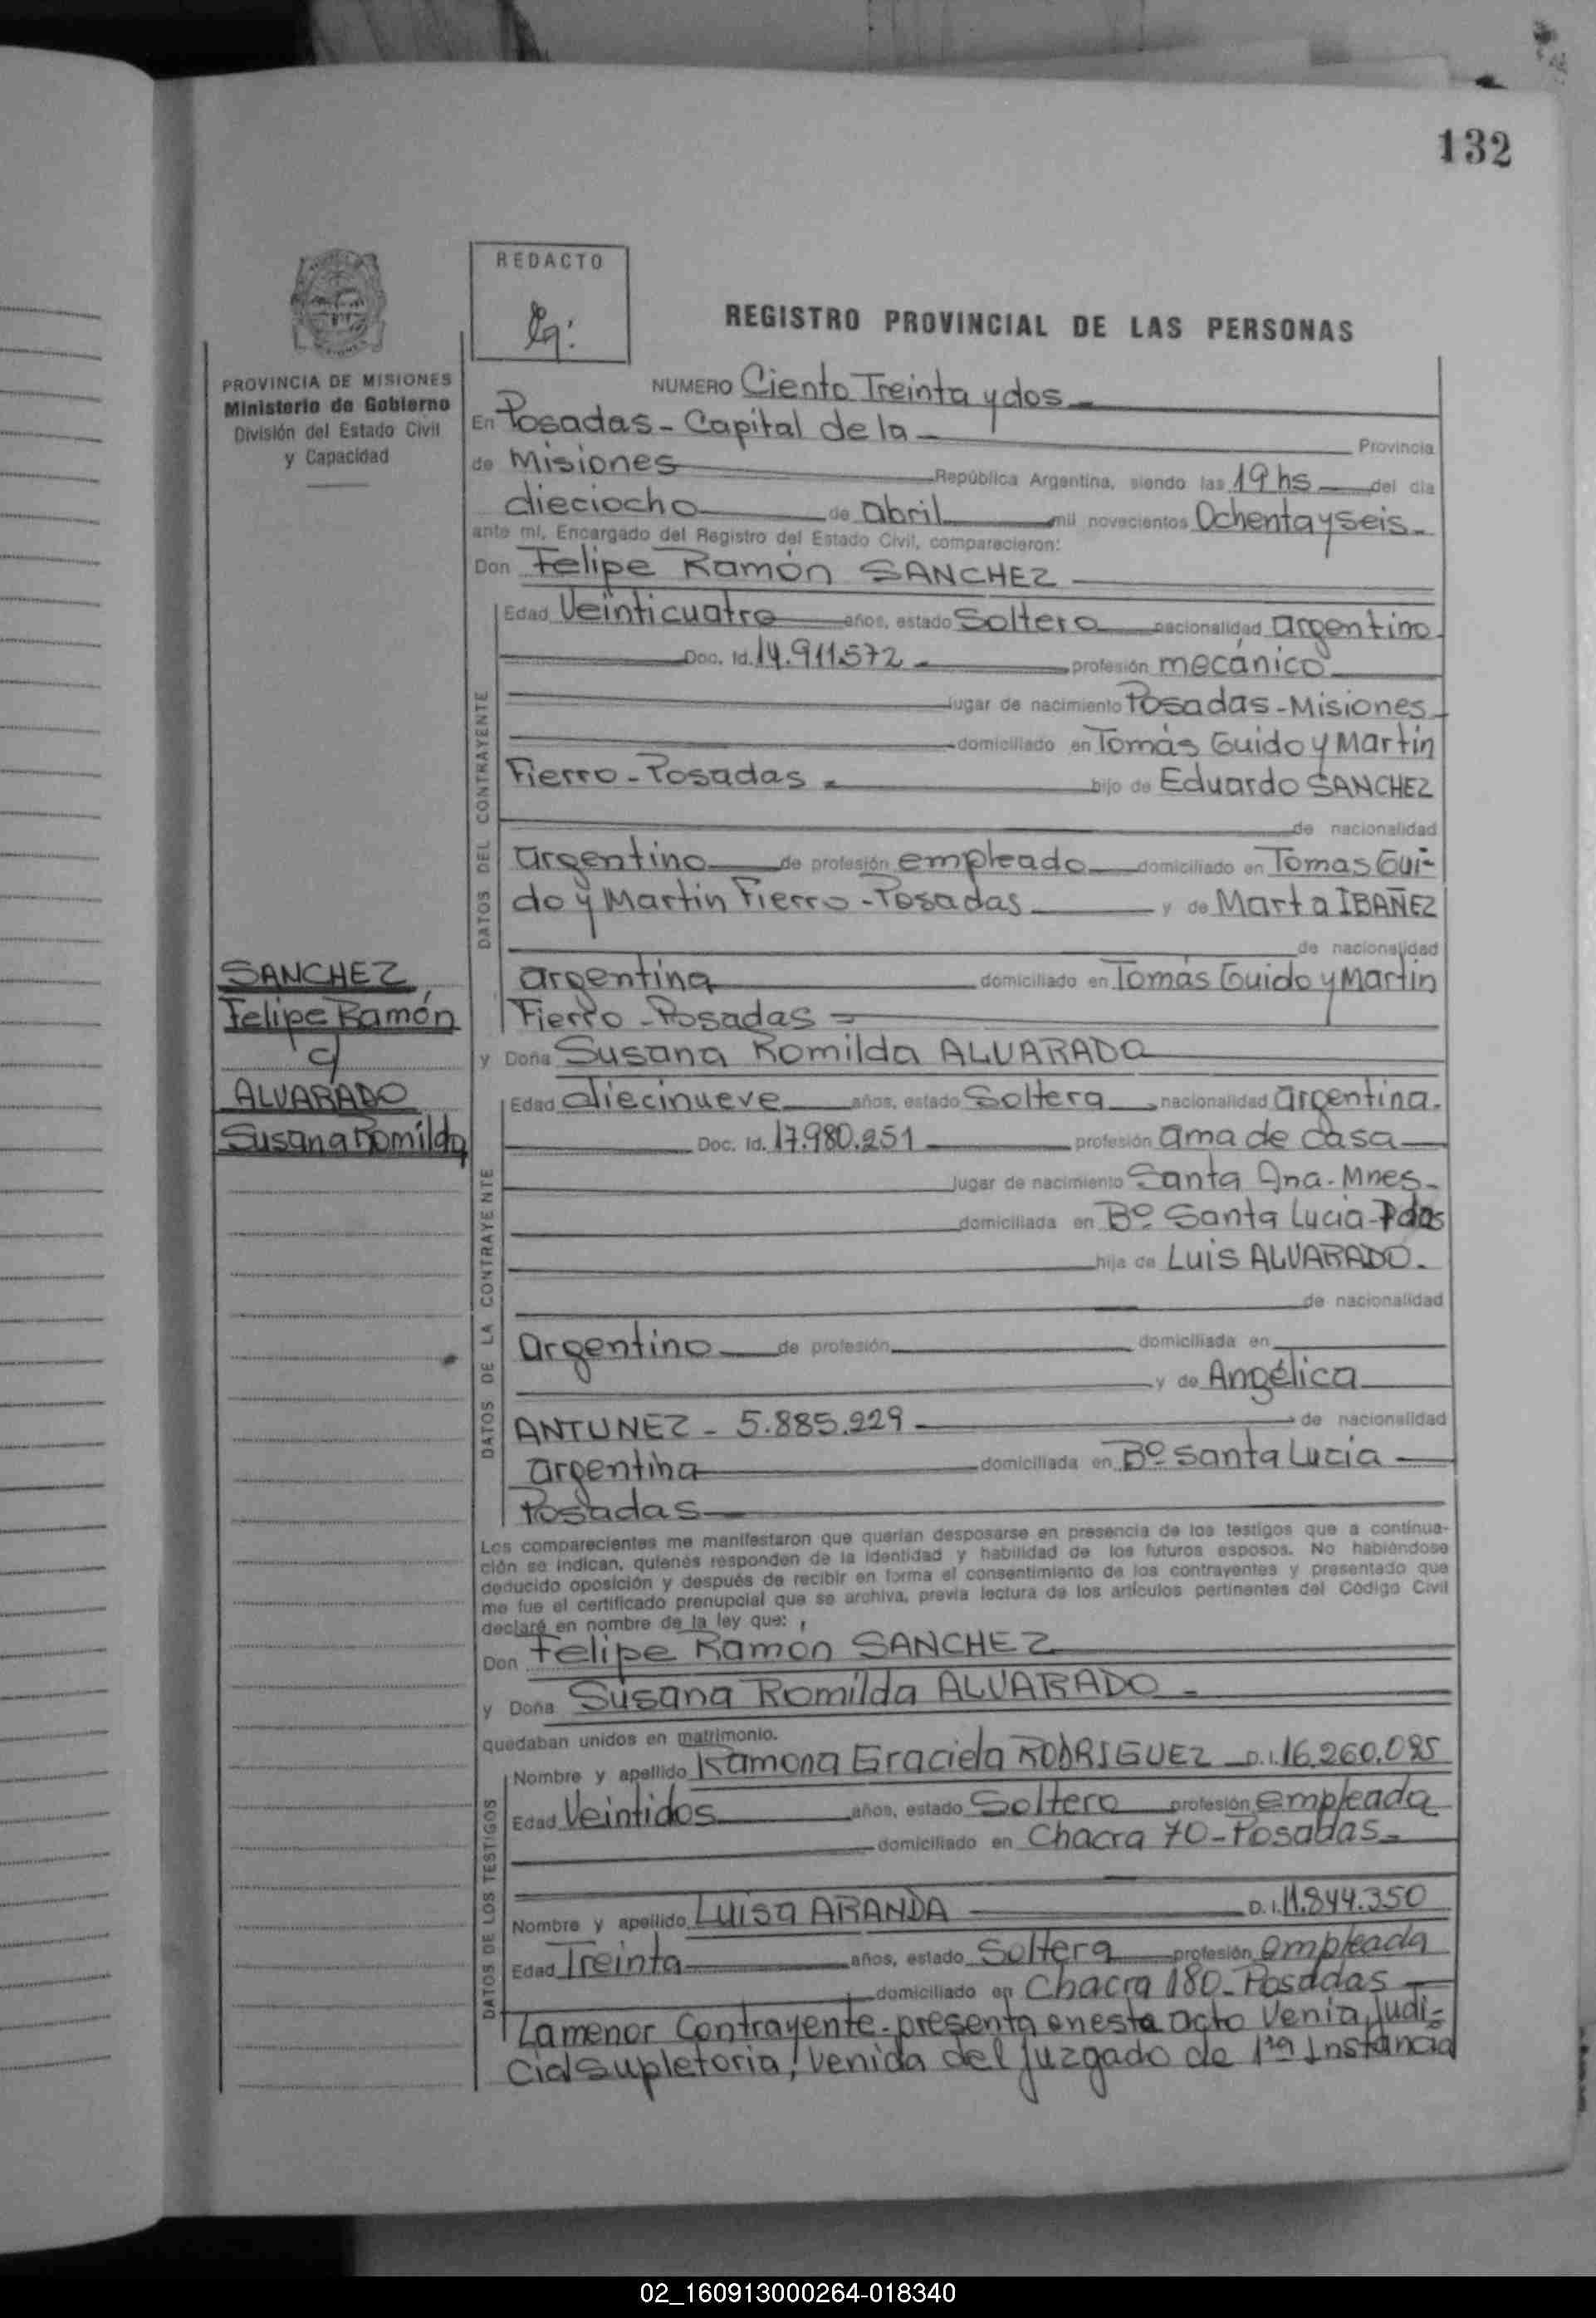 132
REDACTO
REGISTRO PROVINCIAL DE LAS PERSONAS
PROVINCIA DE MISIONES
Ministerio de Gobierno
División del Estado Civil
y Capacidad
NUMERO Ciento Treinta y dos
En Posadas - Capital de la Provincia
de Misiones República Argentina, siendo las 19 hs del dia
dieciocho de abril mil novecientos Ochenta y seis
ante mi, Encargado del Registro del Estado Civil, comparecieron:
Don Felipe Ramón SANCHEZ
DATOS DEL CONTRAYENTE
Edad Veinticuatro años, estado Soltero nacionalidad argentino
Doc. Id. 14.911.572 profesión mecánico
lugar de nacimiento Posadas - Misiones
domiciliado en Tomás Guido y Martin
Fierro - Posadas hijo de Eduardo SANCHEZ
de nacionalidad
argentino de profesión empleado domiciliado en Tomas Gui-
do y Martin Fierro - Posadas y de Marta IBAÑEZ
de nacionalidad
argentina domiciliado en Tomás Guido y Martin
Fierro - Posadas
SANCHEZ,
Felipe Ramón
y
ALVARADO
Susana Romilda
y Doña Susana Romilda ALVARADO
DATOS DE LA CONTRAYENTE
Edad diecinueve años, estado Soltera nacionalidad argentina.
Doc. Id. 17.980.251 profesión ama de casa
lugar de nacimiento Santa Ana - Mnes -
domiciliada en Bº Santa Lucia - Pdas
hija de Luis ALVARADO.
de nacionalidad
argentino de profesión domiciliada en
y de Angélica
ANTUNEZ - 5.885.229 de nacionalidad
argentina domiciliada en Bº Santa Lucia
Posadas
Los comparecientes me manifestaron que querían desposarse en presencia de los testigos que a continua-
ción se indican, quienes responden de la identidad y habilidad de los futuros esposos. No habiéndose
deducido oposición y después de recibir en forma el consentimiento de los contrayentes y presentado que
me fue el certificado prenupcial que se archiva, previa lectura de los artículos pertinentes del Código Civil
declaré en nombre de la ley que:
Don Felipe Ramón SANCHEZ
y Doña Susana Romilda ALVARADO -
quedaban unidos en matrimonio.
DATOS DE LOS TESTIGOS
Nombre y apellido Ramona Graciela RODRIGUEZ D.I. 16.260.085
Edad Veintidos años, estado Soltero profesión empleada
domiciliado en Chacra 70 - Posadas -
Nombre y apellido Luisa ARANDA D.I. 11.844.350
Edad Treinta años, estado Soltera profesión empleada
domiciliado en Chacra 180 - Posadas
La menor Contrayente - presenta en este acto Venia Judi-
cial supletoria, venida del juzgado de 1ra Instancia
02_160913000264-018340